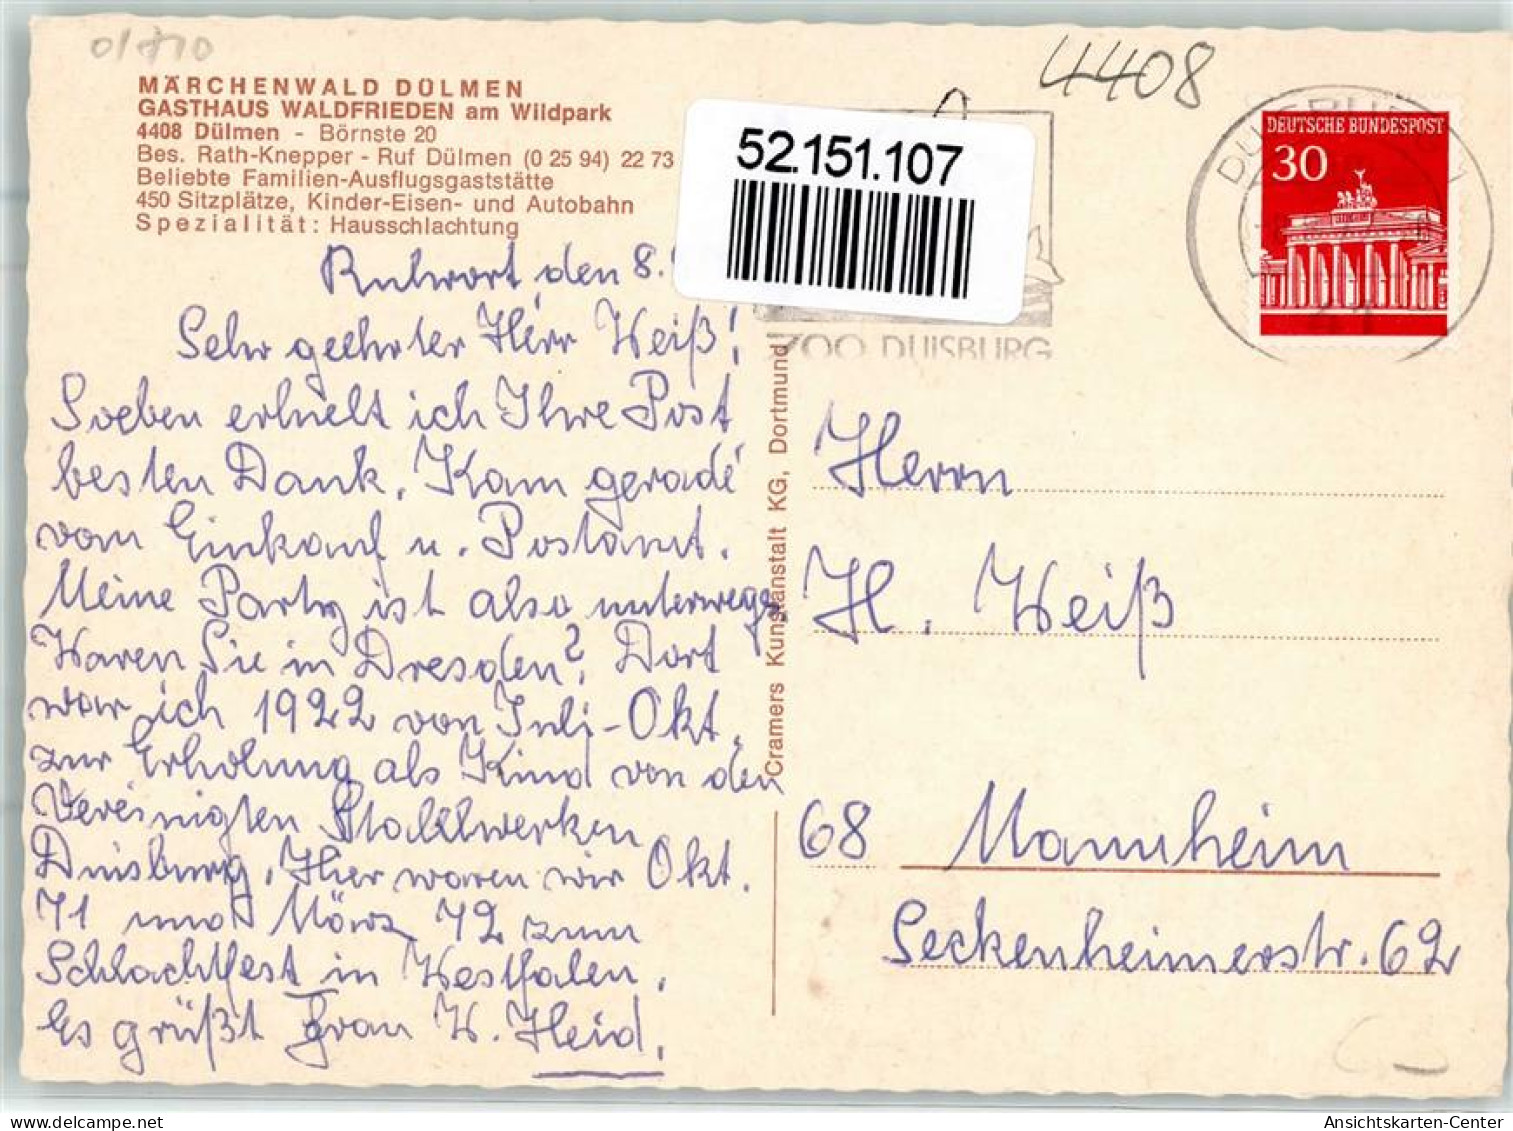 4408
MÄRCHENWALD DÜLMEN
GASTHAUS WALDFRIEDEN am Wildpark
4408 Dülmen - Börnste 20
Bes. Rath-Knepper - Ruf Dülmen (0 25 94) 22 73
Beliebte Familien-Ausflugsgaststätte
450 Sitzplätze, Kinder-Eisen- und Autobahn
Spezialität: Hausschlachtung
52.151.107
ZOO DUISBURG
DEUTSCHE BUNDESPOST
30
Ruhrort, den 8.
Sehr geehrter Herr Weiß!
Soeben erhielt ich Ihre Post
besten Dank. Kam gerade
vom Einkauf u. Postamt.
Meine Party ist also unterwegs.
Waren Sie in Dresden? Dort
war ich 1922 von Juli-Okt.
zur Erholung als Kind von den
Vereinigten Stahlwerken
Duisburg. Hier waren wir Okt.
71 und März 72 zum
Schlachtfest in Westfalen.
Es grüßt Frau W. Heid.
Cramers Kunstanstalt KG, Dortmund
Herrn
H. Weiß
68 Mannheim
Seckenheimerstr. 62
delcampe.net
Ansichtskarten-Center